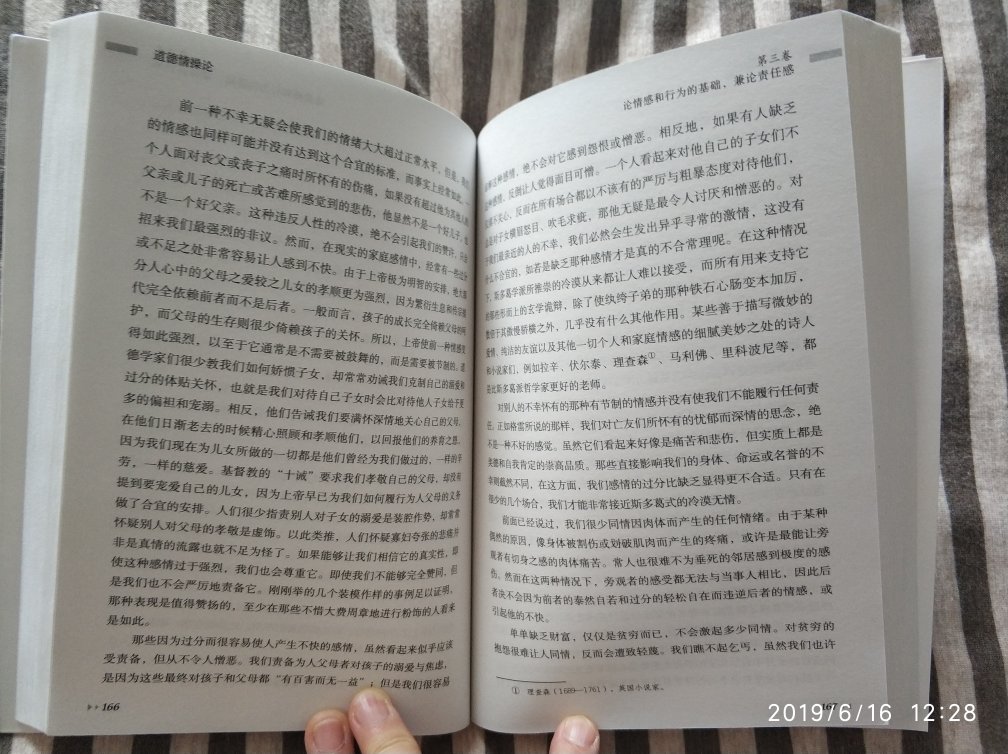 道德情操论
前一种不幸无疑会使我们的情绪大大超过正常水平，但是，我们
的情感也同样可能并没有达到这个合宜的标准，而事实上经常如此。一
个人面对丧父或丧子之痛时所怀有的伤痛，如果没有超过他为其他人的
父亲或儿子的死亡或苦难所感觉到的悲伤，他显然不是一个好儿子，也
不是一个好父亲。这种违反人性的冷漠，绝不会引起我们的赞许，只会
招来我们最强烈的非议。然而，在现实的家庭感情中，经常有一些过分
或不足之处非常容易让人感到不快。由于上帝极为明智的安排，绝大部
分人心中的父母之爱较之儿女的孝顺更为强烈，因为繁衍生息和传宗接
代完全依赖前者而不是后者。一般而言，孩子的成长完全倚赖父母的呵
护，而父母的生存则很少倚赖孩子的关怀。所以，上帝使前一种情感变
得如此强烈，以至于它通常是不需要被鼓舞的，而是需要被节制的。道
德学家们很少教我们如何娇惯子女，却常常劝诫我们克制自己的溺爱和
过分的体贴关怀，也就是我们对待自己子女时会比对待他人子女给予更
多的偏袒和宠溺。相反，他们告诫我们要满怀深情地关心自己的父母，
在他们日渐老去的时候精心照顾和孝顺他们，以回报他们的养育之恩，
因为我们现在为儿女所做的一切都是他们曾经为我们做过的，一样的辛
劳，一样的慈爱。基督教的“十诫”要求我们孝敬自己的父母，却没有
提到要宠爱自己的儿女，因为上帝早已为我们如何履行为人父母的义务
做了合宜的安排。人们很少指责别人对子女的溺爱是装腔作势，却常常
怀疑别人对父母的孝敬是虚饰。以此类推，人们怀疑寡妇夸张的悲痛并
非是真情的流露也就不足为怪了。如果能够让我们相信它的真实性，即
使这种感情过于强烈，我们也会尊重它。即使我们不能够完全赞同，但
是我们也不会严厉地责备它。刚刚举的几个装模作样的事例足以证明，
那种表现是值得赞扬的，至少在那些不惜大费周章地进行粉饰的人看来
是如此。
那些因为过分而很容易使人产生不快的感情，虽然看起来似乎应该
受责备，但从不令人憎恶。我们责备为人父母者对孩子的溺爱与焦虑，
是因为这些最终对孩子和父母都“有百害而无一益”；但是我们很容易
166
第三卷
论情感和行为的基础，兼论责任感
这种感情，绝不会对它感到怨恨或憎恶。相反地，如果有人缺乏
感情，反倒让人觉得面目可憎。一个人看起来对他自己的子女们不
不关心，反而在所有场合都以不该有的严厉与粗暴态度对待他们，
对子女横眉怒目、吹毛求疵，那他无疑是最令人讨厌和憎恶的。对
我们最亲近的人的不幸，我们必然会生发出异乎寻常的激情，这没有
什么不合宜的，如若是缺乏那种感情才是真的不合常理呢。在这种情况
下，斯多葛学派所推崇的冷漠从来都让人难以接受，而所有用来支持它
的那些形而上的玄学诡辩，除了使纨绔子弟的那种铁石心肠变本加厉，
其傲慢骄横之外，几乎没有什么其他作用。某些善于描写微妙的
爱情、纯洁的友谊以及其他一切个人和家庭情感的细腻美妙之处的诗人
和小说家们，例如拉辛、伏尔泰、理查森①、马利佛、里科波尼等，都
是比斯多葛派哲学家更好的老师。
对别人的不幸怀有的那种有节制的情感并没有使我们不能履行任何责
任。正如格雷所说的那样，我们对亡友们所怀有的忧郁而深情的思念，绝
不是一种不好的感觉。虽然它们看起来好像是痛苦和悲伤，但实质上都是
美德和自我肯定的崇高品质。那些直接影响我们的身体、命运或名誉的不
幸则截然不同，在这方面，我们感情的过分比缺乏显得更不合适。只有在
很少的几个场合，我们才能非常接近斯多葛式的冷漠无情。
前面已经说过，我们很少同情因肉体而产生的任何情绪。由于某种
偶然的原因，像身体被割伤或划破肌肉而产生的疼痛，或许是最能让旁
观者有切身之感的肉体痛苦。常人也很难不为垂死的邻居感到极度的感
伤。然而在这两种情况下，旁观者的感受都无法与当事人相比，因此后
者决不会因为前者的泰然自若和过分的轻松自在而违逆后者的情感，或
引起他的不快。
单单缺乏财富，仅仅是贫穷而已，不会激起多少同情。对贫穷的
抱怨很难让人同情，反而会遭致轻蔑。我们瞧不起乞丐，虽然我们也许
① 理查森（1689—1761），英国小说家。
167
2019/6/16 12:28